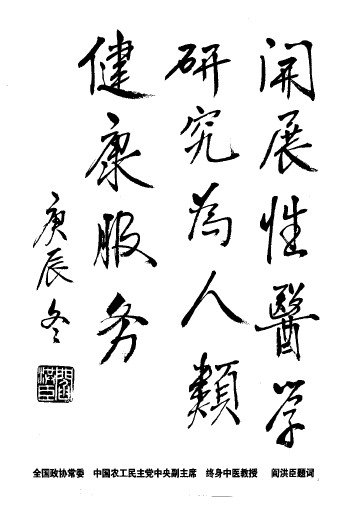 開展性醫学
研究為人類
健康服务
庚辰冬
全国政协常委 中国农工民主党中央副主席 终身中医教授 阎洪臣题词